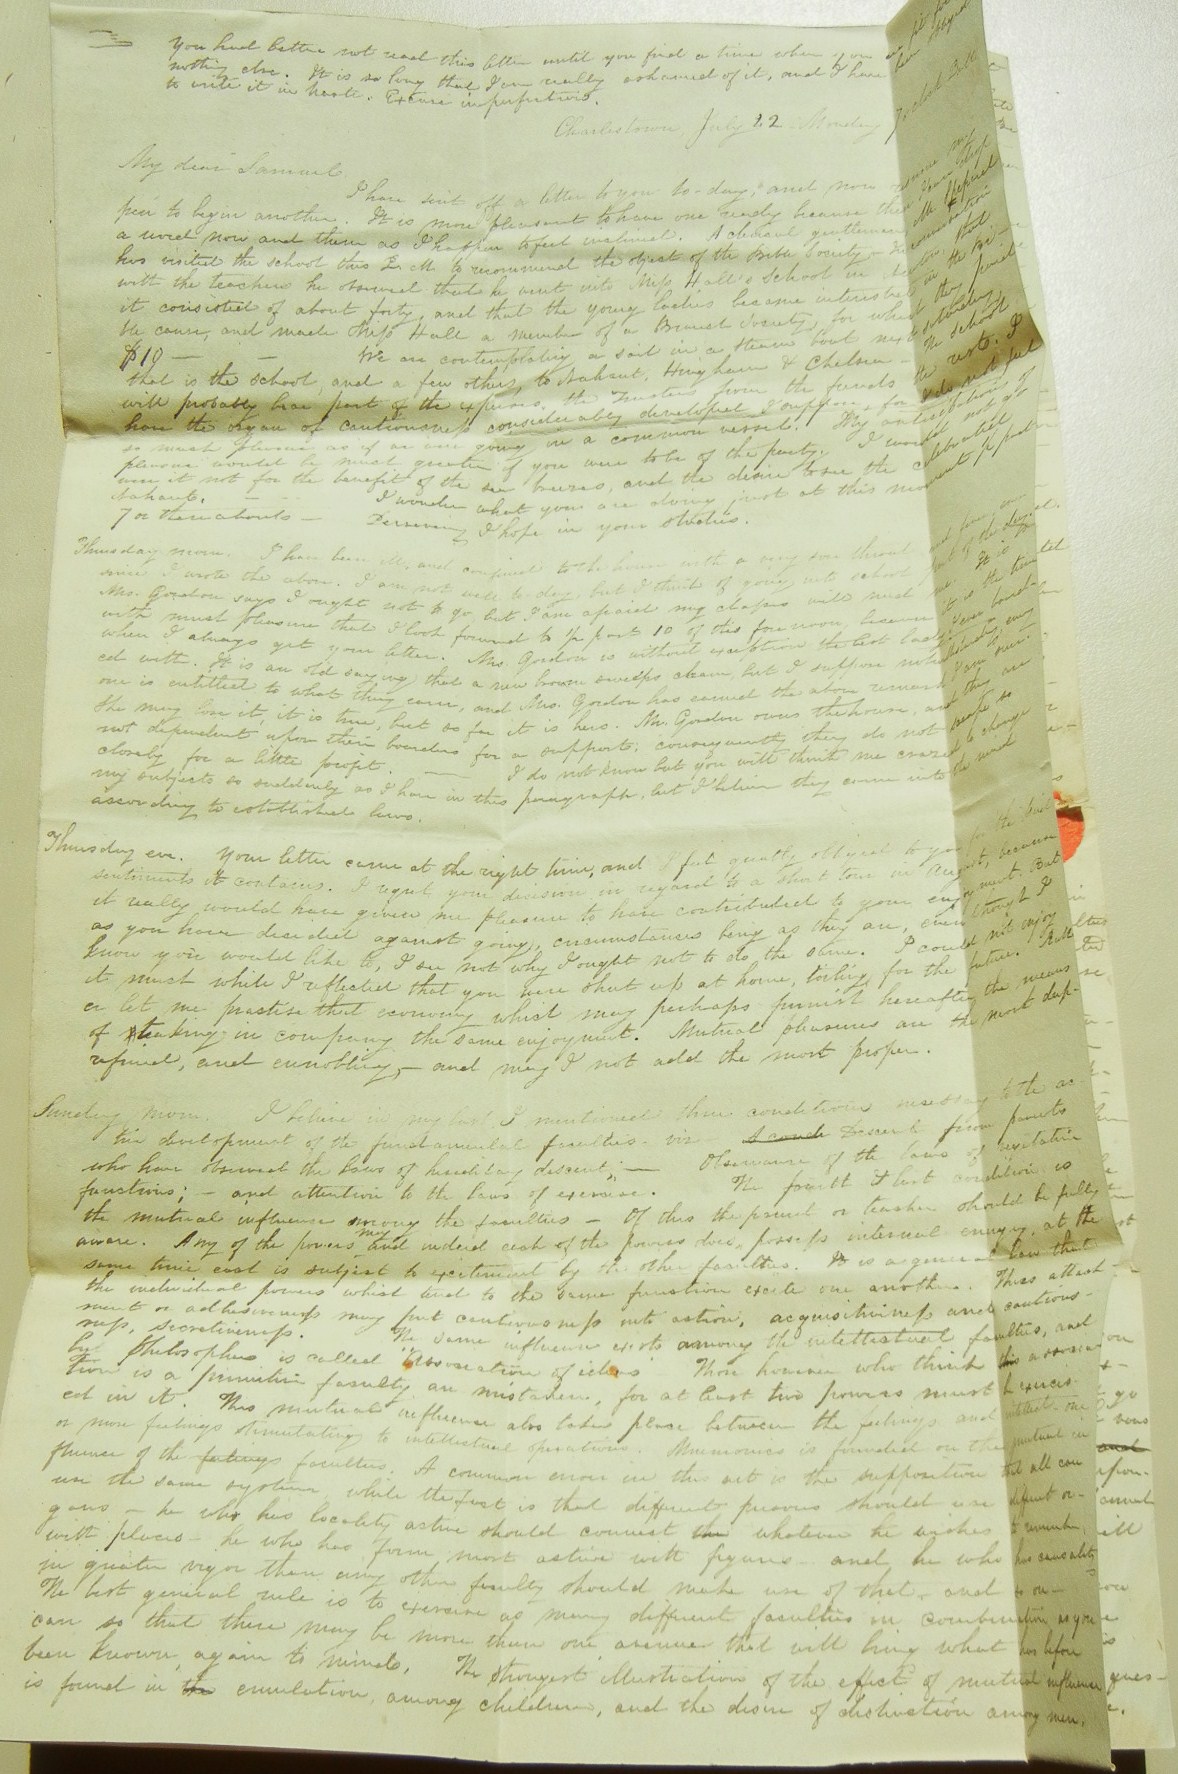 You had better not read this letter until you find a time when you
nothing else. It is so long that I am really ashamed of it, and I have
to write it in haste. Excuse imperfections.
Charlestown July 12 Monday 7 o'clock
My dear Samuel.
I have sent off a letter to you to-day, and now resume my
pen to begin another. It is more pleasant to have one ready because then I can drop
a word now and then as I happen to feel inclined. A clerical gentleman
has visited the school this P.M. to recommend the object of the Bible Society. In conversation
with the teachers he observed that he went into Miss Hall's School in that
it consisted of about forty, and that the young ladies became interested in the Bi-
ble cause, and made Miss Hall a member of a Branch Society, for which they paid
$10 — — We are contemplating a sail in a steam boat next Saturday,
that is the school, and a few others, to Nahant, Hingham & Chelsea — The school
will probably bear part of the expenses, the Trustees from the funds the rest. I
have the organ of cautiousness considerably developed I suppose, for I do not feel
so much pleasure as if we were going in a common vessel. My anticipation of
pleasure would be much greater if you were to be of the party. I would not go
were it not for the benefit of the sea breezes, and the desire to see the celebrated
Nahant. — — I wonder what you are doing just at this moment
7 or thereabouts — Persevering I hope in your studies.
Thursday morn. I have been ill, and confined to the house with a very sore throat
since I wrote the above. I am not well to-day, but I think of going into school
Mrs. Gordon says I ought not to go but I am afraid my classes will need me. It is
with much pleasure that I look forward to ½ past 10 of this forenoon, because it is the time
when I always get your letter. Mrs. Gordon is without exception the best lady I ever board-
ed with. It is an old saying that a new broom sweeps clean, but I suppose notwithstanding, every
one is entitled to what they earn, and Mrs. Gordon has earned the above remark I am sure.
She may lose it, it is true, but so far it is hers. Mr. Gordon owns the house, and they are
not dependent upon their boarders for a support; consequently they do not scrape so
closely for a little profit. — I do not know but you will think me crazed to change
my subjects so suddenly as I have in this paragraph, but I believe they come into the mind
according to established laws.
Thursday eve. Your letter came at the right time, and I feel greatly obliged to you for the kind
sentiments it contains. I regret your decision in regard to a short tour in August, because
it really would have given me pleasure to have contributed to your enjoyment. But
as you have decided against going, circumstances being as they are, even though I
know you would like to, I see not why I ought not to do the same. I could not enjoy
it much while I reflected that you were shut up at home, toiling for the future. Rath-
er let me practise that economy which may perhaps furnish hereafter the means
of taking in company the same enjoyment. Mutual pleasures are the most deep-
refined, and ennobling, — and may I not add the most proper.
Sunday morn. I believe in my last, I mentioned three conditions necessary to the ac-
tive development of the fundamental faculties. viz — Descent from parents
who have observed the laws of hereditary descent; — Observance of the laws of vegetative
functions; — and attention to the laws of exercise. The fourth & last condition is
the mutual influence among the faculties — Of this the parent or teacher should be fully
aware. Any of the powers may and indeed each of the powers does, possess internal energy, at the
same time each is subject to excitement by the other faculties. It is a general law that
the individual powers which tend to the same function excite one another. Thus attach-
ment or adhesiveness may put cautiousness into action, acquisitiveness and cautious-
ness, secretiveness. The same influence exists among the intellectual faculties, and
by Philosophers is called "Association of ideas" Those however who think this associa-
tion is a primitive faculty, are mistaken, for at least two powers must be exercis-
ed in it. This mutual influence also takes place between the feelings and intellect. one
or more feelings stimulating to intellectual operations. Mnemonics is founded on the mutual in-
fluence of the faculties. A common error in this art is the supposition that all can
use the same system, while the fact is that different persons should use different or-
gans — he who has locality active should connect whatever he wishes to remember,
with places — he who has form most active with figures — and he who has causality
in greater vigor than any other faculty should make use of that, — and so on —
The best general rule is to exercise as many different faculties in combination as you
can so that there may be more than one avenue that will bring what has before
been known, again to mind. The strongest illustration of the effect of mutual influence
is found in emulation, among children, and the desire of distinction among men.